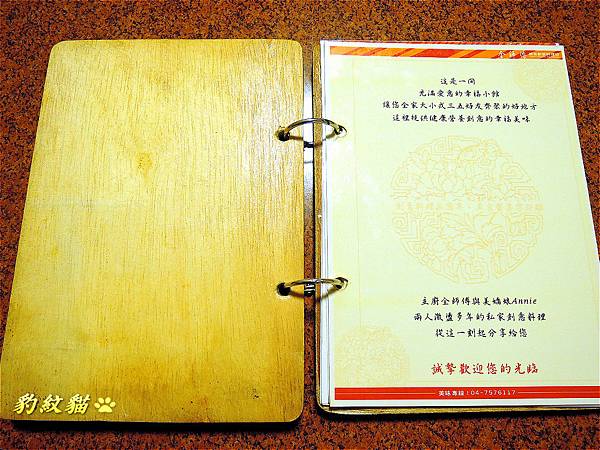 這是一間
充滿愛意的幸福小館
讓您全家大小或三五好友齊聚的好地方
這裡提供健康營養創意的幸福美味
主廚金師傅與美嬌娘Annie
兩人激盪多年的私家創意料理
從這一刻起分享給您
誠摯歡迎您的光臨
美味專線:04-7576117
豹紋貓